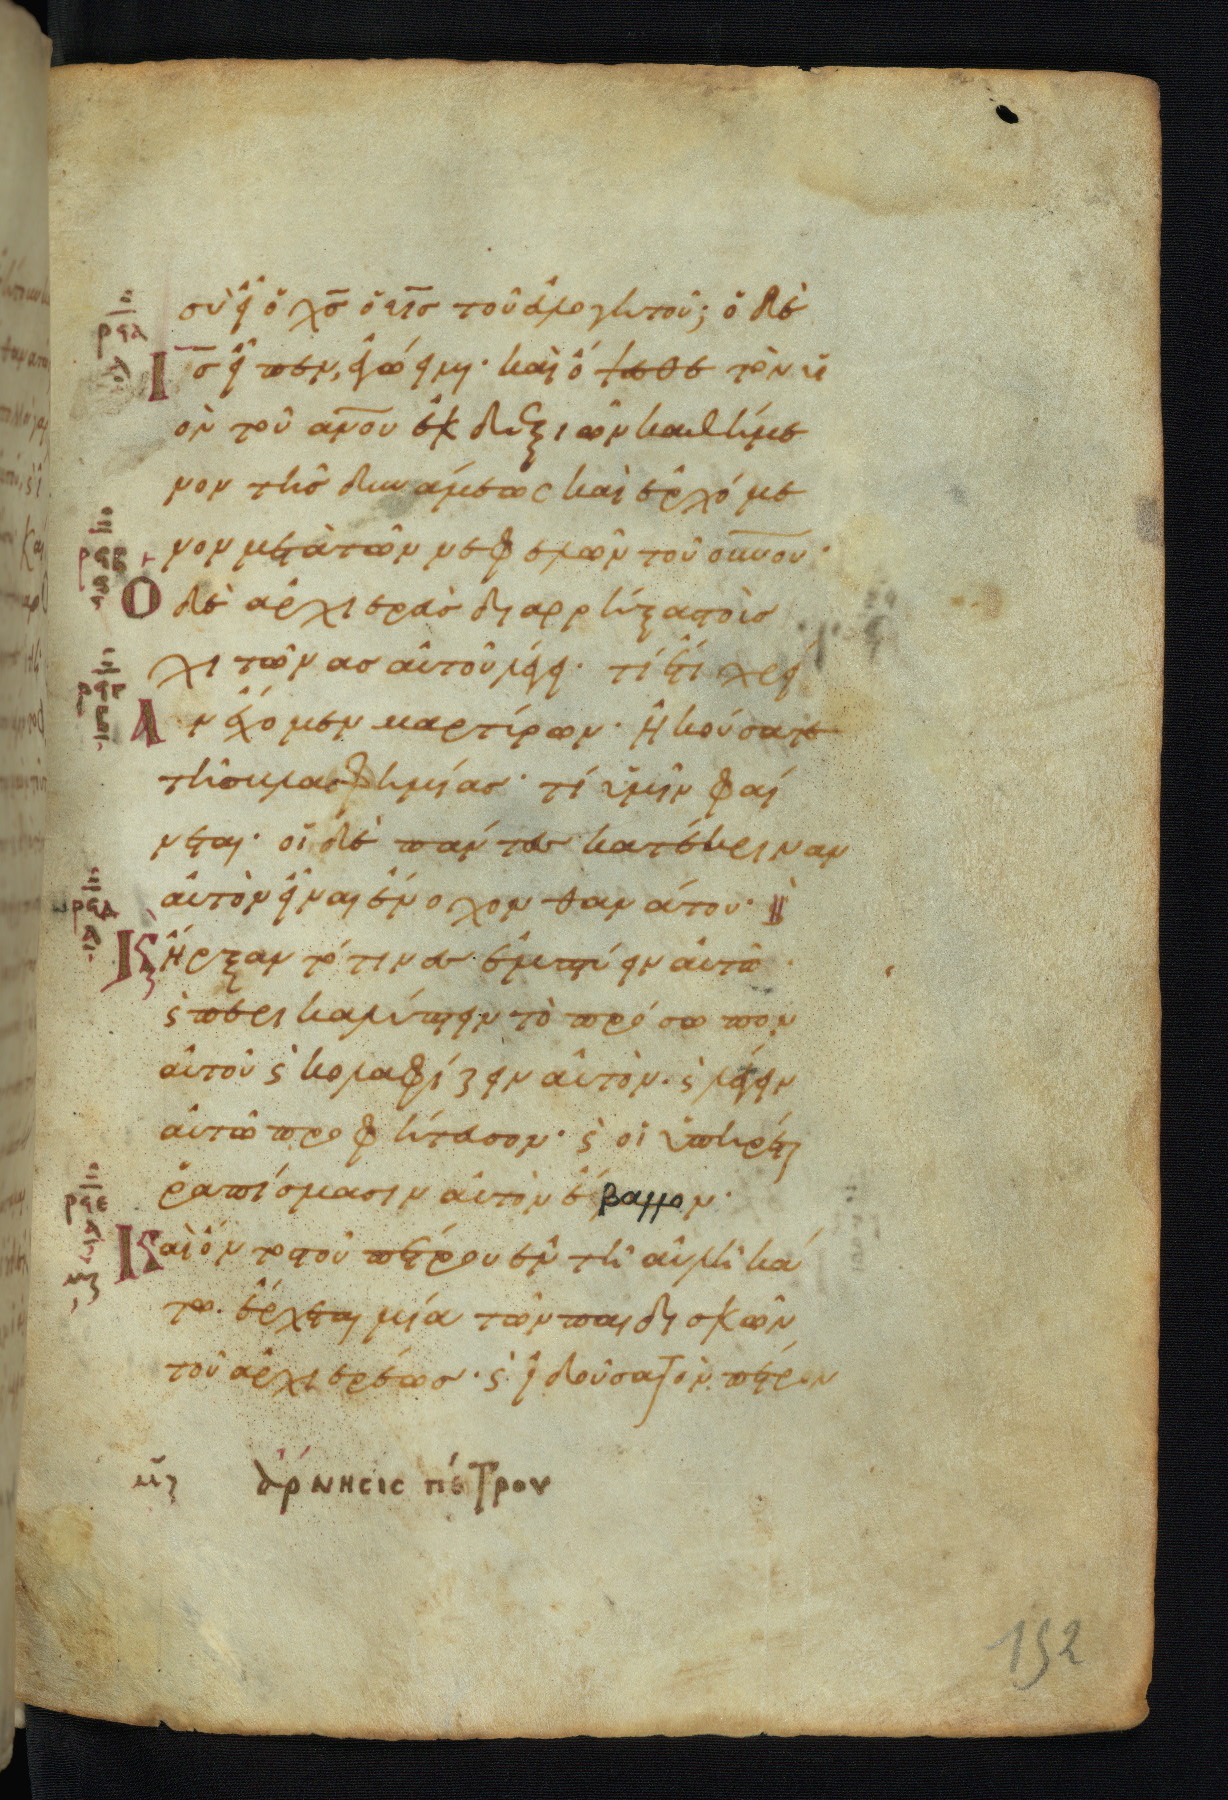 σὺ εἶ ὁ χς ὁ υἱς τοῦ εὐλογητοῦ; ὁ δὲ
ις εἶπεν, ἐγώ εἰμι· καὶ ὄψεσθε τὸν υἱ
ὸν τοῦ ανου ἐκ δεξιῶν καθήμε
νον τῆς δυνάμεως καὶ ἐρχόμε
νον μετὰ τῶν νεφελῶν τοῦ ουνου·
Ο δὲ ἀρχιερεὺς διαρρήξας τοὺς
χιτῶνας αὐτοῦ λέγει· τί ἔτι χρεί
αν ἔχομεν μαρτύρων· ἠκούσατε
τῆς βλασφημίας· τί ὑμῖν φαί
νεται· οἱ δὲ πάντες κατέκριναν
αὐτὸν εἶναι ἔνοχον θανάτου·
Κς ἤρξαντό τινες ἐμπτύειν αὐτῷ·
ϛ περικαλύπτειν τὸ πρόσωπον
αὐτοῦ ϛ κολαφίζειν αὐτὸν· ϛ λέγειν
αὐτῷ προφήτευσον· ϛ οἱ ὑπηρέται
ῥαπίσμασιν αὐτὸν ἔβαλλον·
Καὶ ὄντος τοῦ πέτρου ἐν τῇ αὐλῇ κά
τω· ἔρχεται μία τῶν παιδισκῶν
τοῦ ἀρχιερέως· ϛ ἰδοῦσα τὸν πέτρον
μζ ἄρνησις πέτρου
ρϙα
α
ρϙβ
ϛ
ρϙγ
β
ρϙδ
α
ρϙε
α
μζ
152